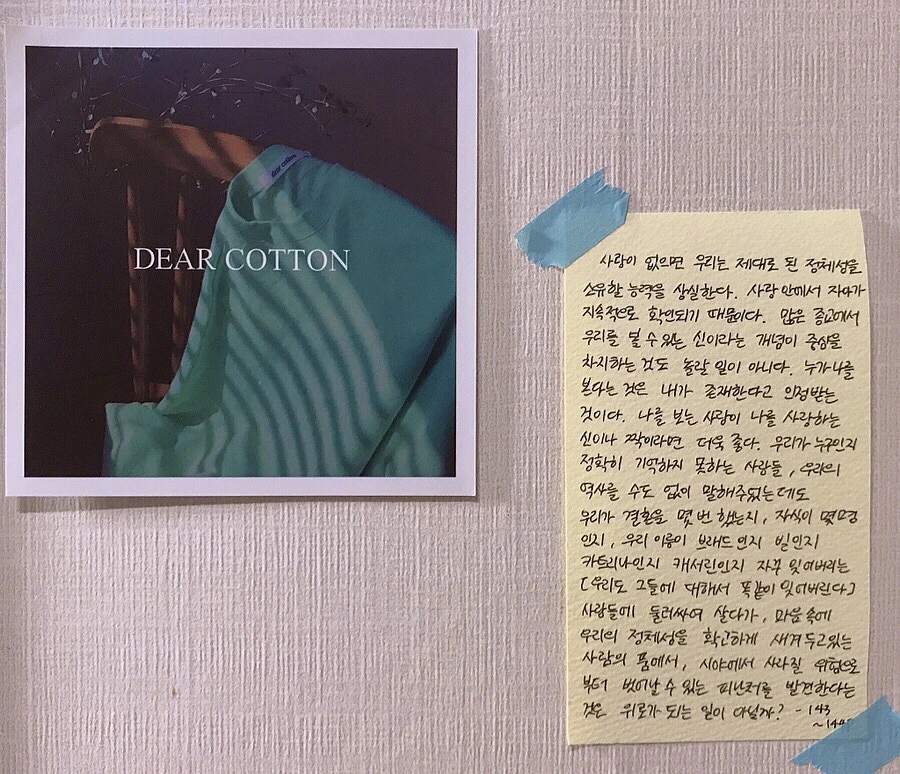 DEAR COTTON
dear cotton
사랑이 없으면 우리는 제대로 된 정체성을
소유할 능력을 상실한다. 사랑 안에서 자아가
지속적으로 확인되기 때문이다. 많은 종교에서
우리를 볼 수 있는 신이라는 개념이 중심을
차지하는 것도 놀랄 일이 아니다. 누가 나를
본다는 것은 내가 존재한다고 인정받는
것이다. 나를 보는 사람이 나를 사랑하는
신이나 짝이라면 더욱 좋다. 우리가 누구인지
정확히 기억하지 못하는 사람들, 우리의
역사를 수도 없이 말해주었는데도
우리가 결혼을 몇 번 했는지, 자식이 몇 명
인지, 우리 이름이 브래드인지 빌인지
카트리나인지 캐서린인지 자꾸 잊어버리는
[우리도 그들에 대해서 똑같이 잊어버린다]
사람들에 둘러싸여 살다가, 마음 속에
우리의 정체성을 확고하게 새겨 두고 있는
사람의 품에서, 시야에서 사라질 위험으로
부터 벗어날 수 있는 피난처를 발견한다는
것은 위로가 되는 일이 아닐까? - 143